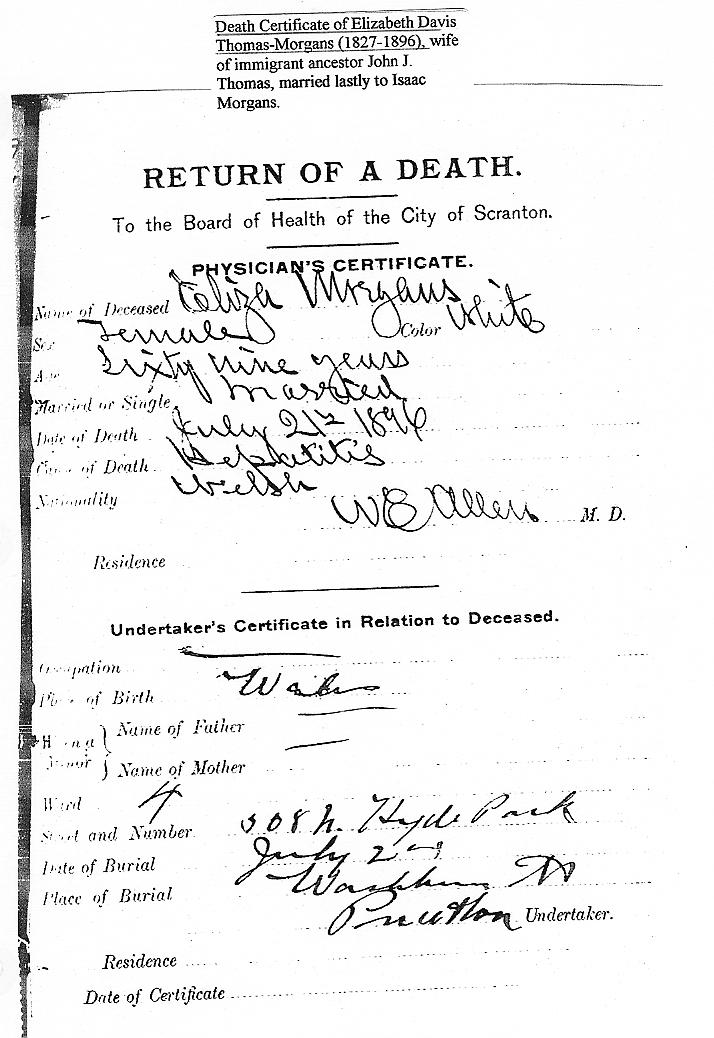 Death Certificate of Elizabeth Davis
Thomas-Morgans (1827-1896), wife
of immigrant ancestor John J.
Thomas, married lastly to Isaac
Morgans.
RETURN OF A DEATH.
To the Board of Health of the City of Scranton.
PHYSICIAN'S CERTIFICATE.
Name of Deceased Eliza Morgans
Sex Female Color White
Age Sixty nine years
Married or Single, Married
Date of Death July 21st 1896
Cause of Death Hepatitis
Nationality Welsh
W E Allen M. D.
Residence
Undertaker's Certificate in Relation to Deceased.
Occupation
Place of Birth Wales
Name of Father
Name of Mother
Ward 4
Street and Number 308 N. Hyde Park
Date of Burial July
Place of Burial Washburn St
Undertaker.
Residence
Date of Certificate